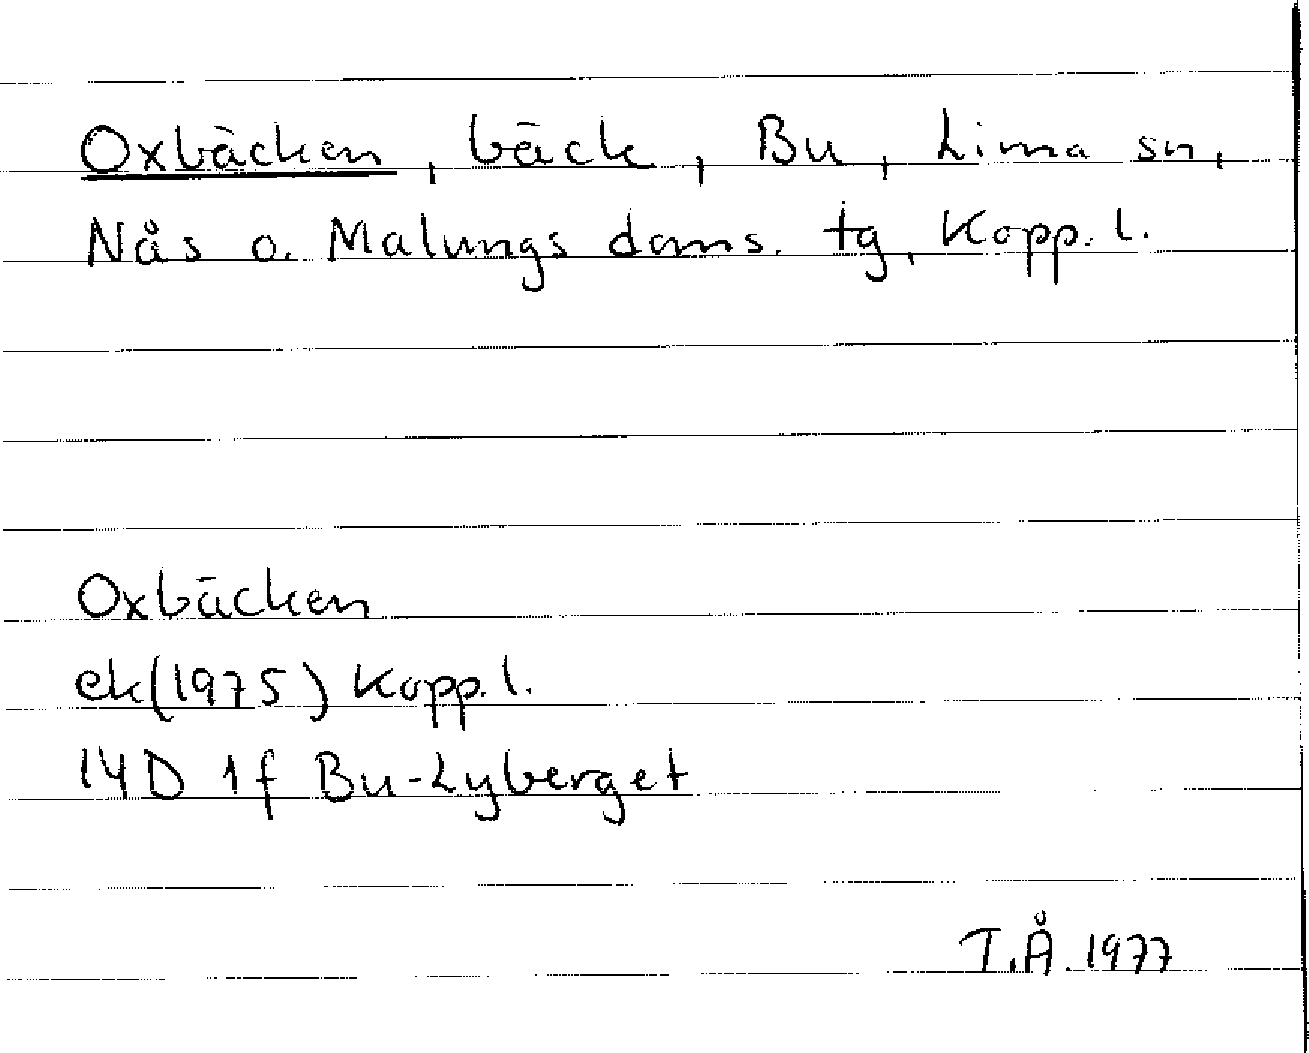 Oxbäcken, bäck, Bu, Lima sn,
Nås o. Malungs doms. tg, Kopp. l.
Oxbäcken
ek(1975) Kopp. l.
14D 1f Bu-Lyberget
T.Å. 1977